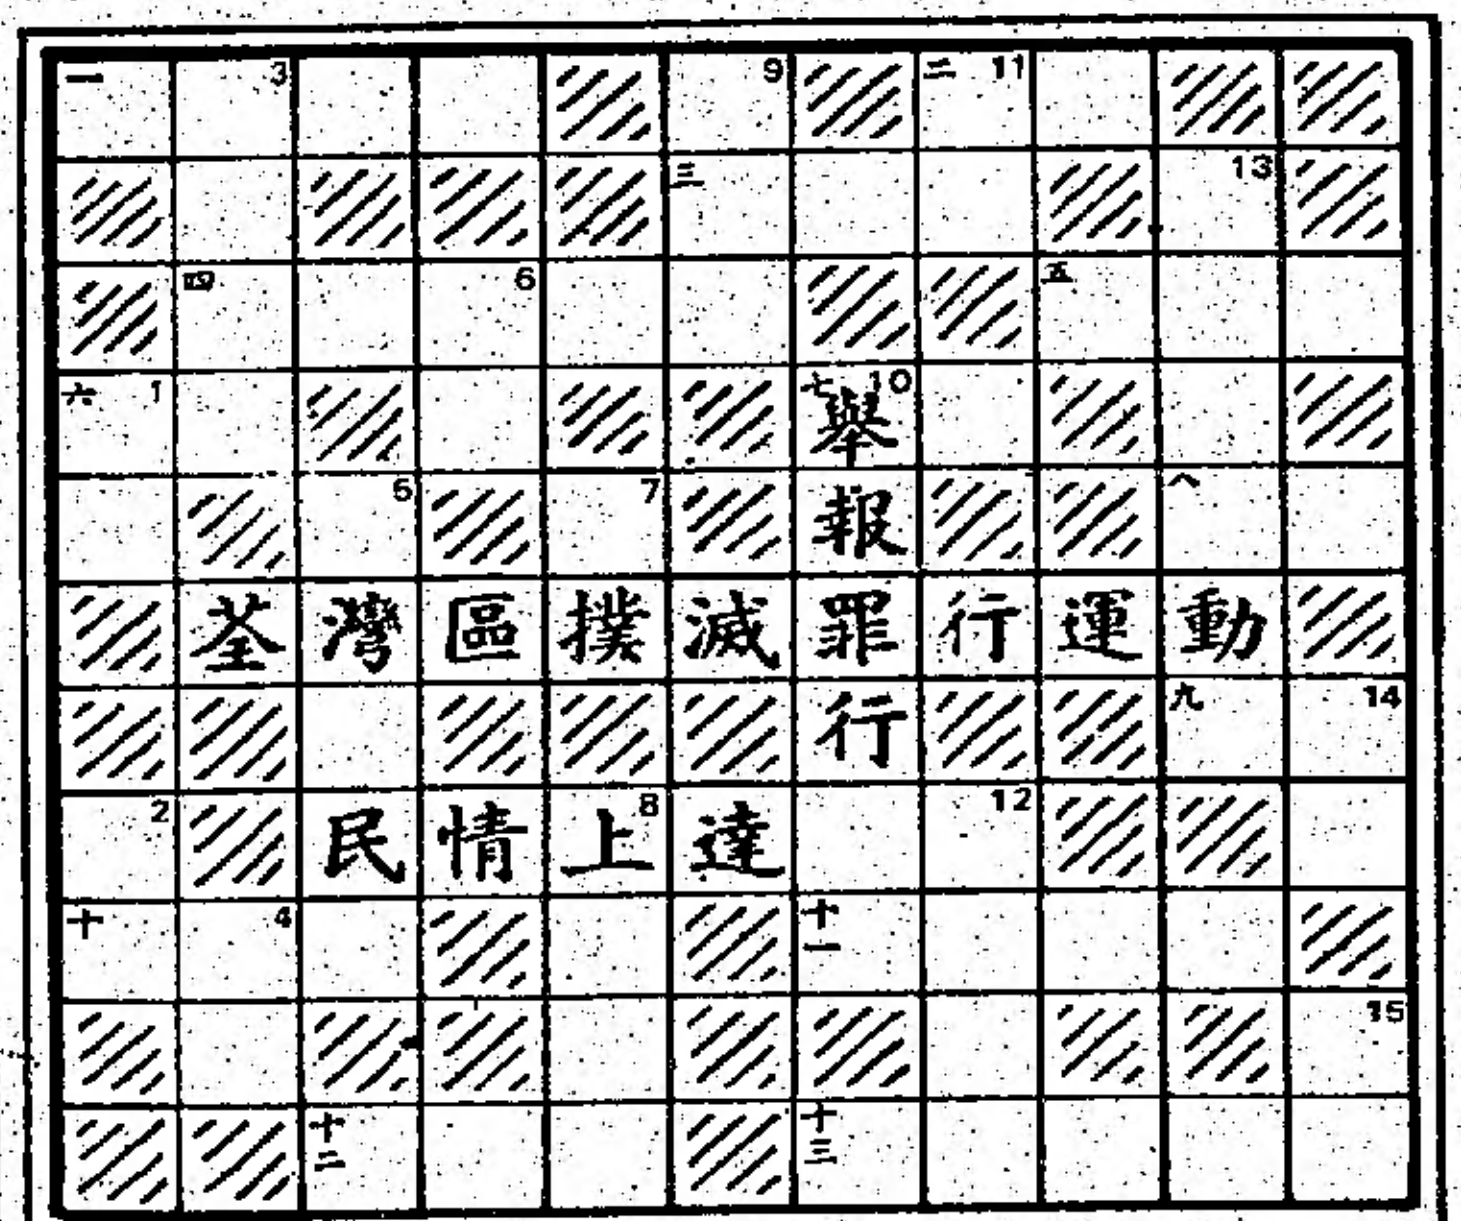 一 3 9 二 11
三 13
四 6 五
六 1 七 10 舉
5 7 報 八
荃灣區撲滅罪行運動
行 九 14
2 民情上 8 達 12
十 4 十一
15
十二 十三